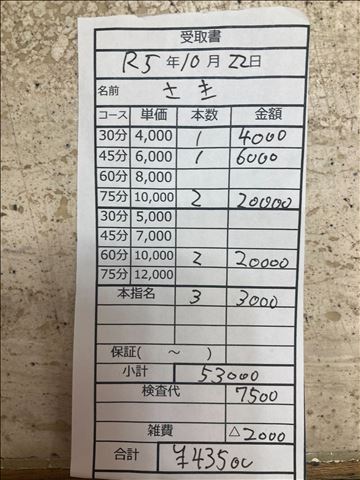 受取書
R5年10月22日
名前 さき
コース 単価 本数 金額
30分 4,000 1 4000
45分 6,000 1 6000
60分 8,000
75分 10,000 2 20000
30分 5,000
45分 7,000
60分 10,000 2 20000
75分 12,000
本指名 3 3000
保証( ～ )
小計 53000
検査代 7500
雑費 △2000
合計 ¥43500